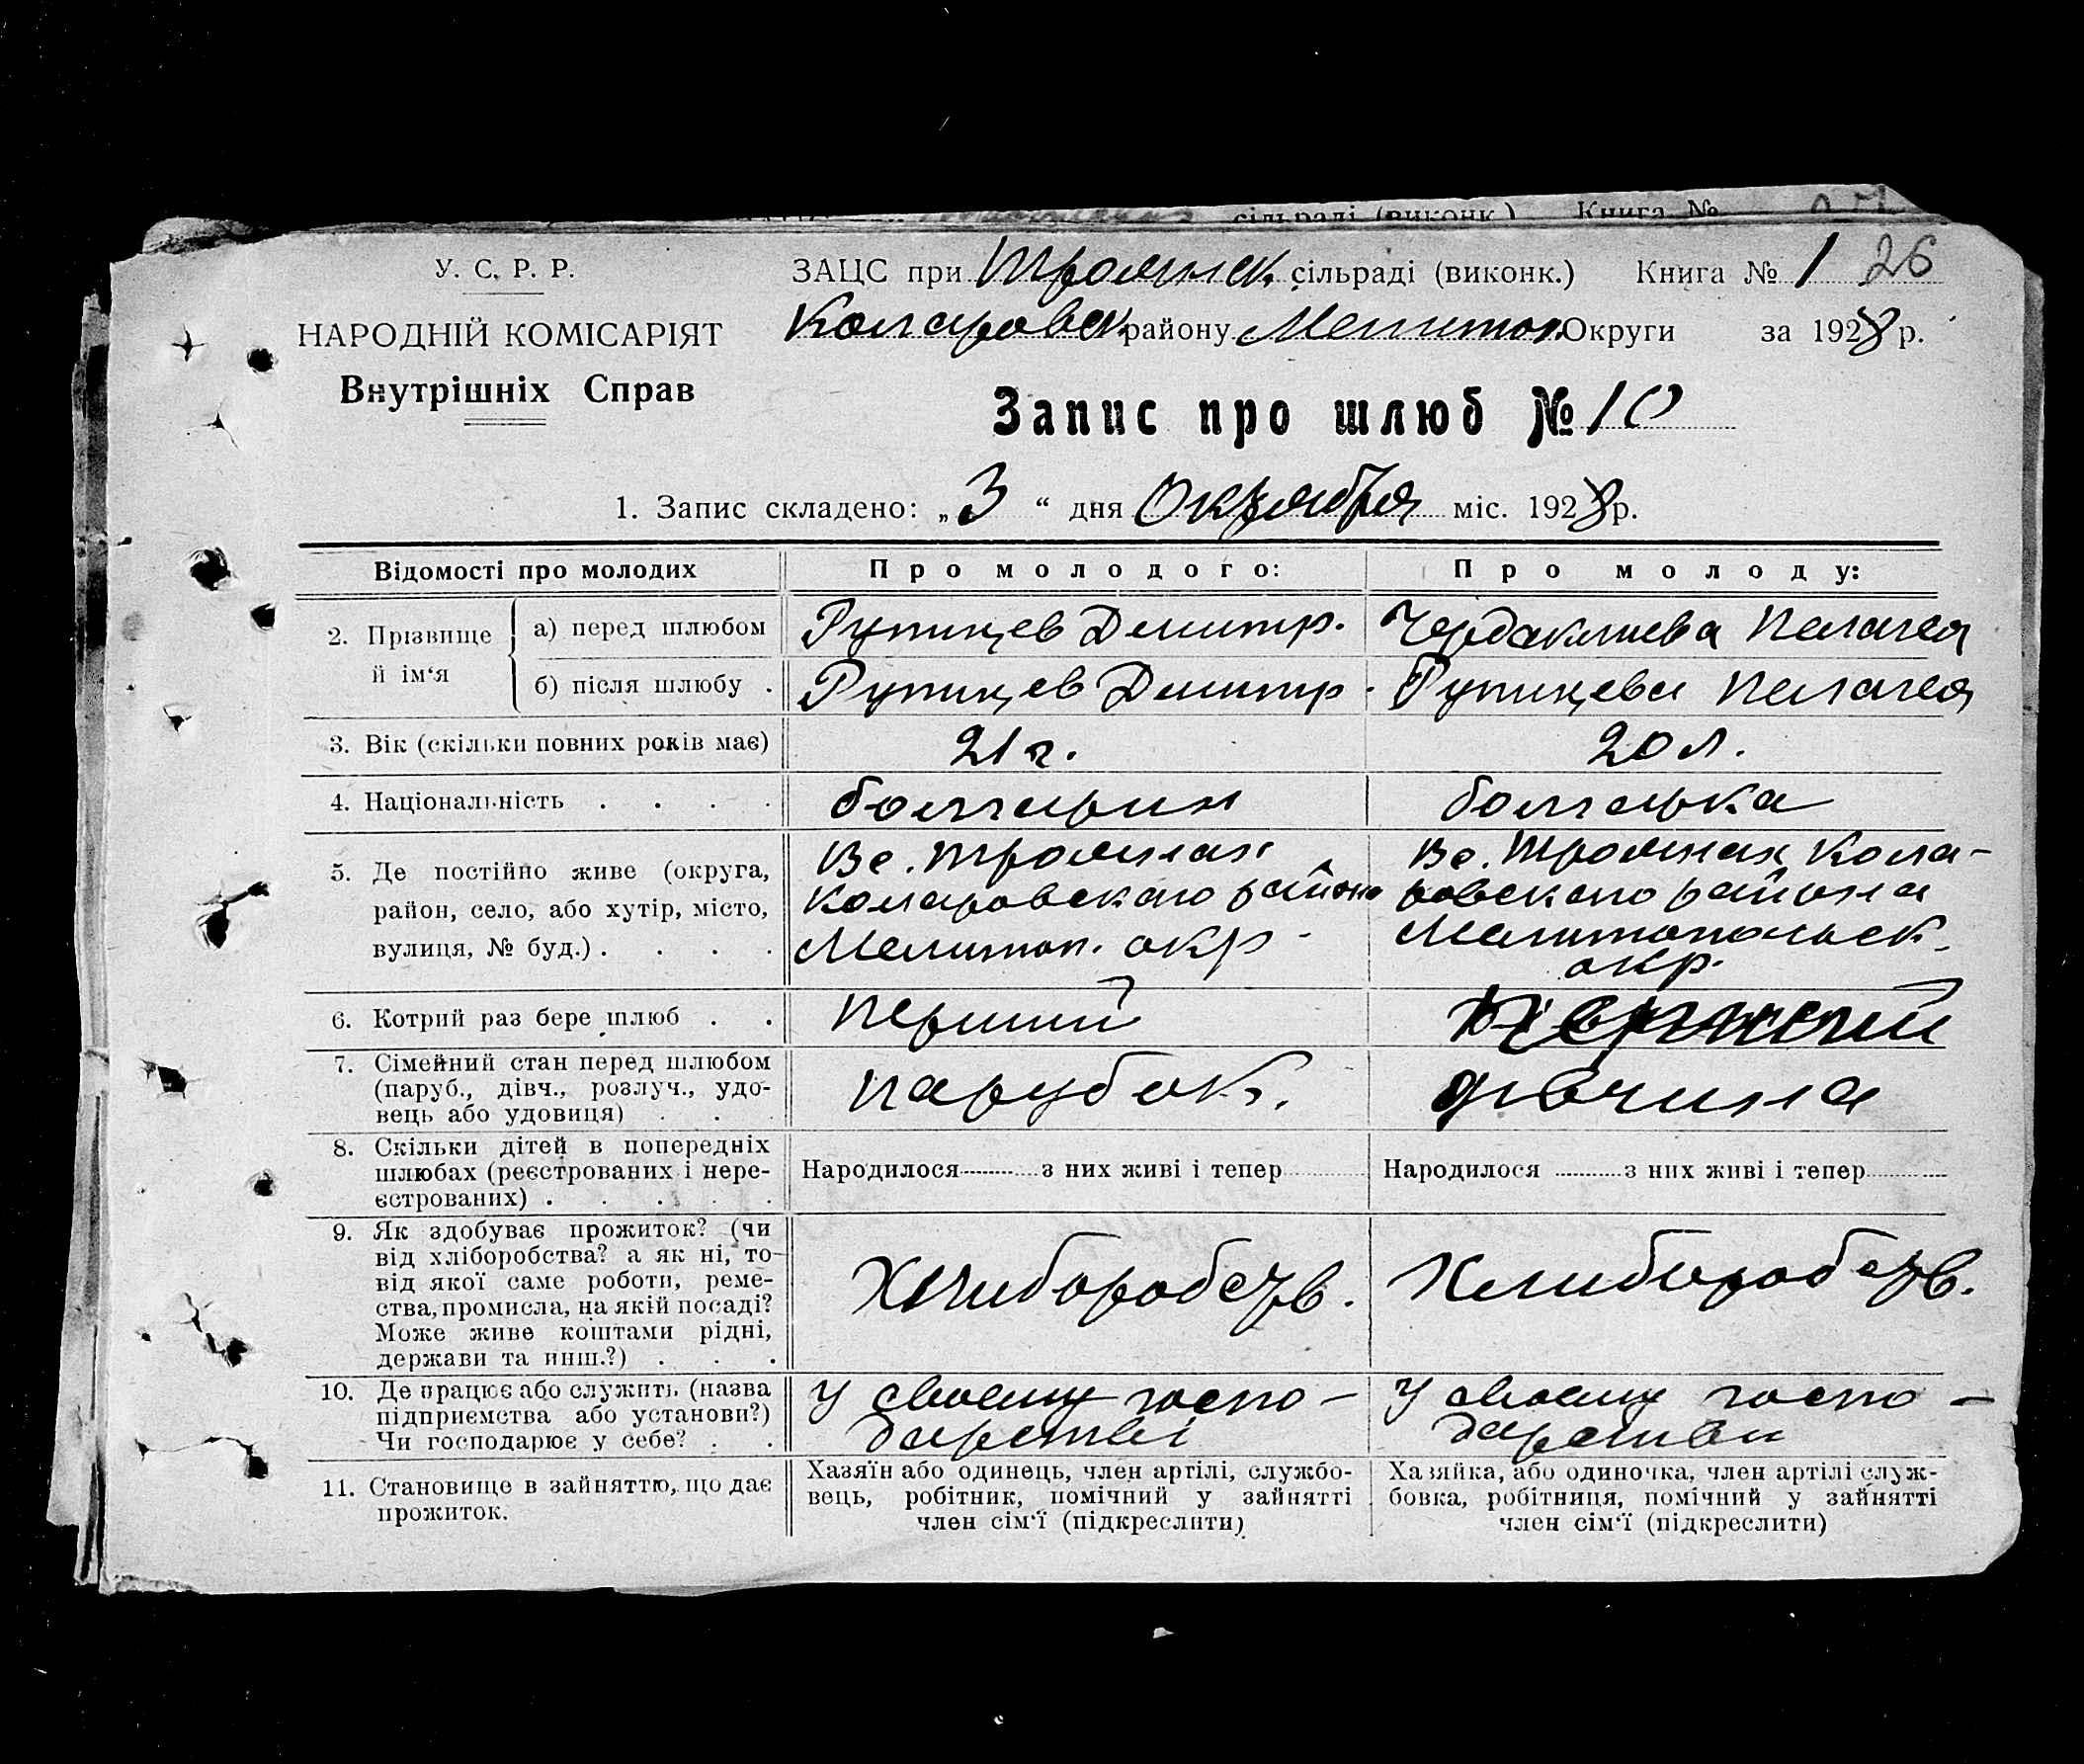 сільраді (виконк.) Книга №
У. С. Р. Р.
ЗАЦС при Трояниск. сільраді (виконк.) Книга № 1 26
НАРОДНІЙ КОМІСАРІЯТ
Коларовск району Мелитоп. Округи за 1928 р.
Внутрішніх Справ
Запис про шлюб № 10
1. Запис складено: „3“ дня Октября міс. 1928 р.
Відомості про молодих Про молодого: Про молоду:
2. Прізвище й ім‘я
а) перед шлюбом Рупицев Димитр. Чердаклиева Пелагея
б) після шлюбу . Рупицев Димитр. Рупицева Пелагея
3. Вік (скільки повних років має) 21 г. 20 л.
4. Національність . . . . болгарин болгарка
5. Де постійно живе (округа,
район, село, або хутір, місто,
вулиця, № буд.) . . . .
Вс. Троянах
Коларовскаго района
Мелитоп. окр.
Вс. Троянах Кола-
ровскаго района
Мелитопольск.
окр.
6. Котрий раз бере шлюб . . перший
7. Сімейний стан перед шлюбом
(паруб., дівч., розлуч., удо-
вець або удовиця) . . .
парубок.
дівчина
8. Скільки дітей в попередніх
шлюбах (реєстрованих і нере-
єстрованих) . . . . .
Народилося ........ з них живі і тепер ........
Народилося ........ з них живі і тепер ........
9. Як здобуває прожиток? (чи
від хліборобства? а як ні, то-
від якої саме роботи, реме-
ства, промисла, на якій посаді?
Може живе коштами рідні,
держави та инш.?) . . .
Хлиборобств.
Хлиборобств.
10. Де працює або служить (назва
підприємства або установи?)
Чи господарює у себе? . .
У своему госпо-
дарстві
У своему госпо-
дарстви
11. Становище в зайняттю, що дає
прожиток.
Хазяїн або одинець, член артілі, службо-
вець, робітник, помічний у зайнятті
член сім‘ї (підкреслити)
Хазяйка, або одиночка, член артілі служ-
бовка, робітниця, помічний у зайнятті
член сім‘ї (підкреслити)